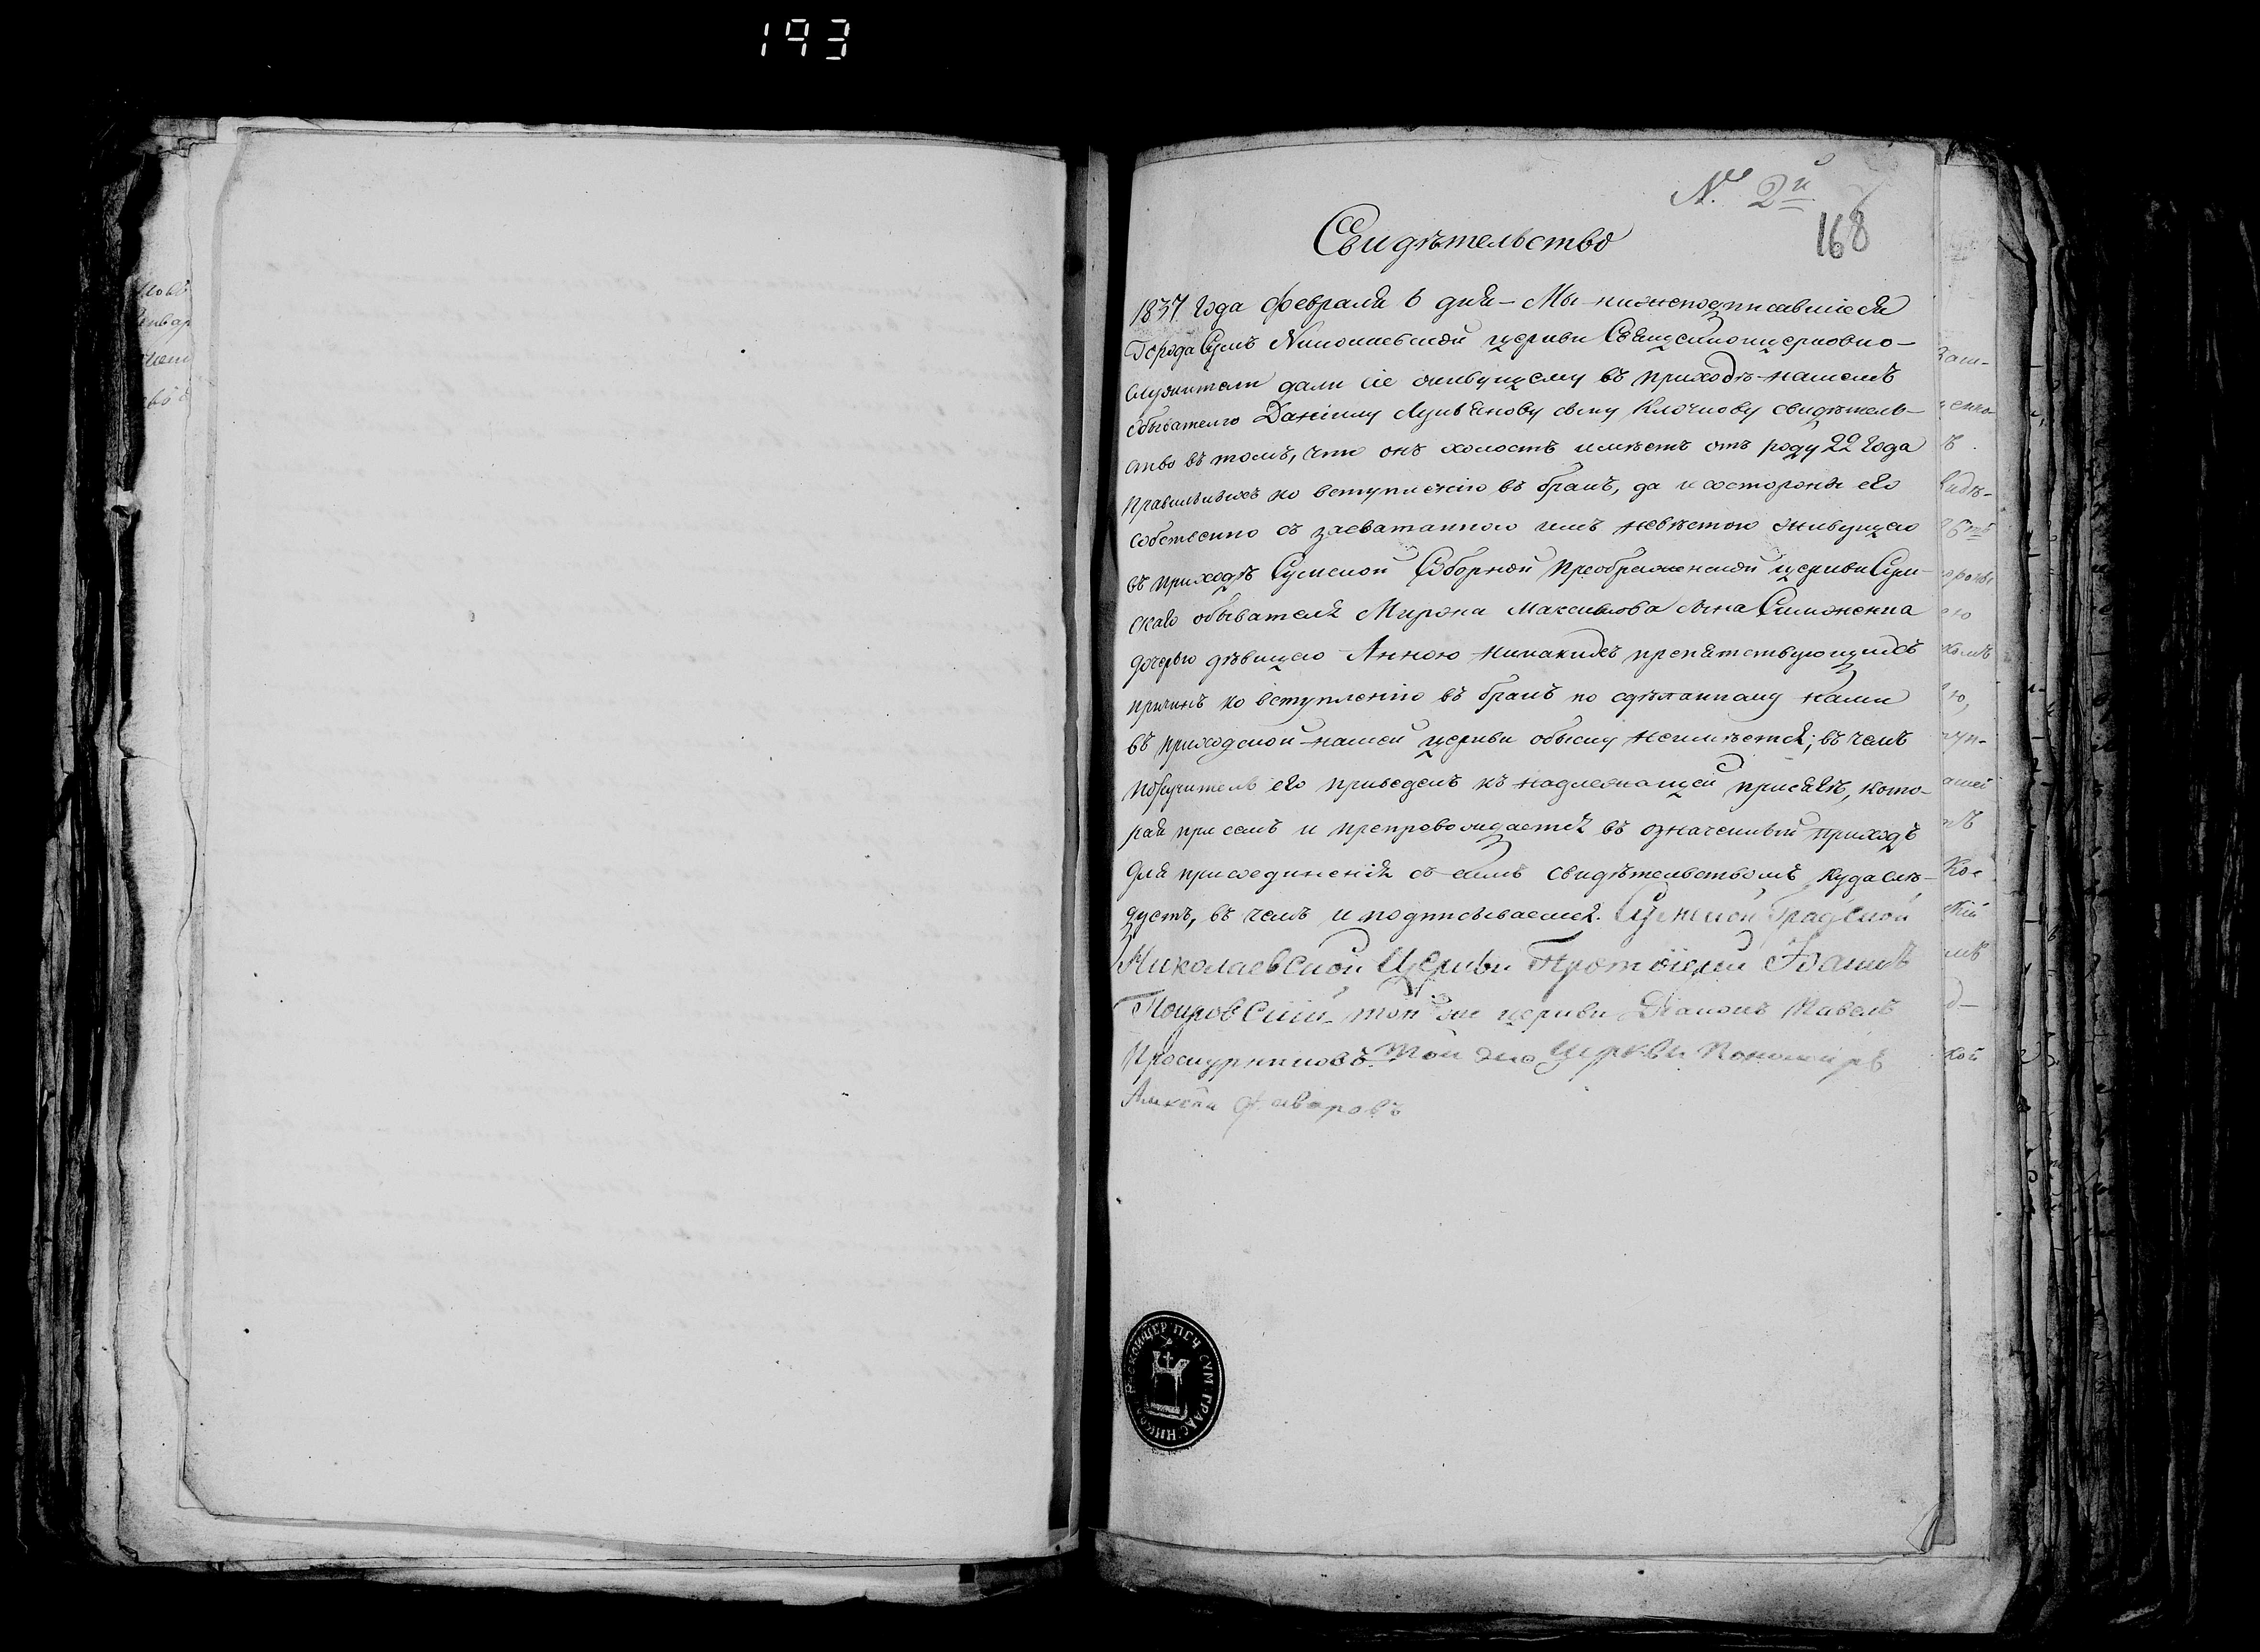 193
№ 2й
168
Свидѣтельство
1837 года февраля 6 дня – Мы нижеподписавшіеся
Города Сумъ Николаевской церкви Священноцерковно-
служители дали сіе живущему въ приходѣ нашемъ
обывателю Даніилу Лукьянову сыну Клочкову свидѣтель-
ство въ томъ, что онъ холостъ имѣетъ отъ роду 22 года
ко вступленію въ бракъ, да и состороны его
собственно съ засватанною имъ невѣстою живущею
въ приходѣ Сумской Соборной Преображенской церкви Сум-
скаго обывателя Мирона Максимова сына Симоненка
дочерью дѣвицею Анною никакихъ препятствующихъ
причинъ ко вступленію въ бракъ по сдѣланному нами
въ приходской нашей церкви обыску неимѣется; въ чемъ
поручитель его приведенъ къ надлежащей присягѣ, кото-
рая при семъ и препровождается въ означенный приходъ
для присоединенія съ симъ свидѣтельствомъ куда слѣ-
дуетъ, въ чемъ и подписываемся. Сумской Градской
Николаевской Церкви Протоіерей Іоаннъ
Покровскій той же церкви Діаконъ Павелъ
Проскурниковъ. Той же Церкви Пономарь
ПЕЧ СУМ ГРАДС НИКО